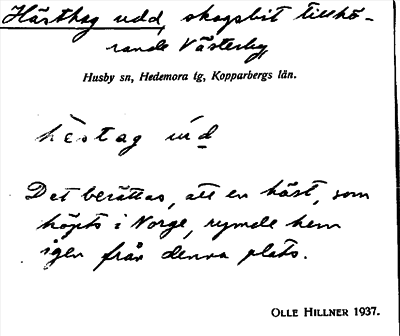 Hästhag udd, skogsbit tillhö-
rande Västerby,
Husby sn, Hedemora tg, Kopparbergs län.
hèstag ùd
Det berättas, att en häst, som
köpts i Norge, rymde hem
igen från denna plats.
OLLE HILLNER 1937.